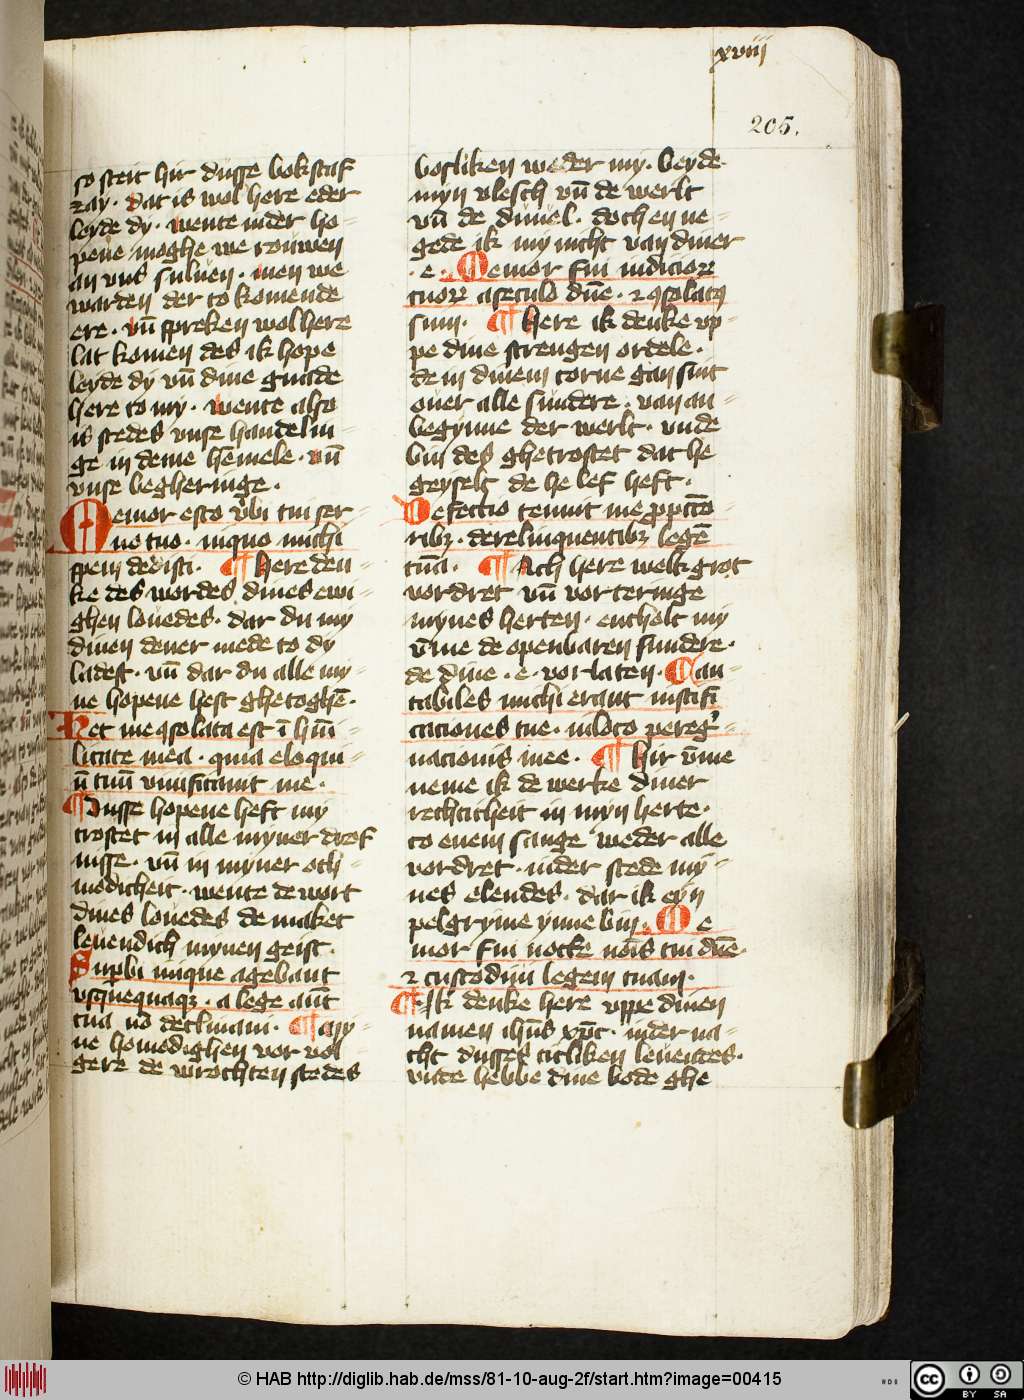 xviij
205.
so steit hir dusse bokstaf
zay. dat is wol here eder
lerde dy. wente in der ho=
pene moghe we rouwen
an vns suluen. men we
warden der to komende
ere. vn̄ spreken wol here
lat komen des ik hope
lerde dy vn̄ dine gnade
here to my. wente also
is stedes vnse handelin=
ge in deme hēmele. vn̄
vnse begheringe.
Memor esto v̄bi tui ser=
uo tuo. in quo michi
spem dedisti. ¶ Here den=
ke des wordes dines ewi=
ghen louedes. dar du my
dinen dener mede to dy
ladest. vn̄ dar du alle my=
ne hopene hest ghetoghē.
Hec me ꝯsolata est ī hūi=
litate mea. quia eloqui=
ū tuū viuificauit me.
¶ Dusse hopene heft my
trostet in alle myner drof
nisse. vn̄ in myner oth=
modicheit. wente de wort
dines louedes de maket
leuendich mynen geist.
Supbi inique agebant
vsq̄uequaqz. a lege aūt
tua nō declinaui. ¶ Myi=
ne homodighen vor vol=
gere de wrochten stedes
bosliken weder my. beyde
myn vlesch vn̄ de werlt
vn̄ de duuel. doch en ne=
gede ik my nicht van diner
.e. Memor fui iudicioꝝ
tuoꝝ a seculo dn̄e. ⁊ ꝯsolatꝰ
sum. ¶ Here ik denke vp=
pe dine strengen ordele.
de in dinem torne gan sint
ouer alle sundere. van an=
begynne der werlt. vnde
bin des ghetrostet dat he
geyselt de he lef heft.
Defectio tenuit me p̱ ptctō
ribꝫ. derelinquentibꝫ legē
tuā. ¶ Ach here welk grot
vordret vn̄ vorteringe
mynes herten. entholt my
v̄me de openbaren sundere.
de dine .e. vorlaten. Can=
tabiles michi erant iustifi
caciones tue. in loco pereg̓=
nacionis mee. ¶ Hir v̄me
neme ik de werke diner
rechticheit in myn herte.
to enem sange weder alle
vordret. in der stede my=
nes elendes. dar ik eyn
pelgryme ynne bin. Me
mor fui nocte noīs tui dn̄e.
⁊ custodiui legem tuam.
¶ Ik denke here vppe dinen
namen ihūs xp̄c. in der na=
cht dusses titliken leuendes.
vnde hebbe dine bode ghe
© HAB http://diglib.hab.de/mss/81-10-aug-2f/start.htm?image=00415
cc
BY SA